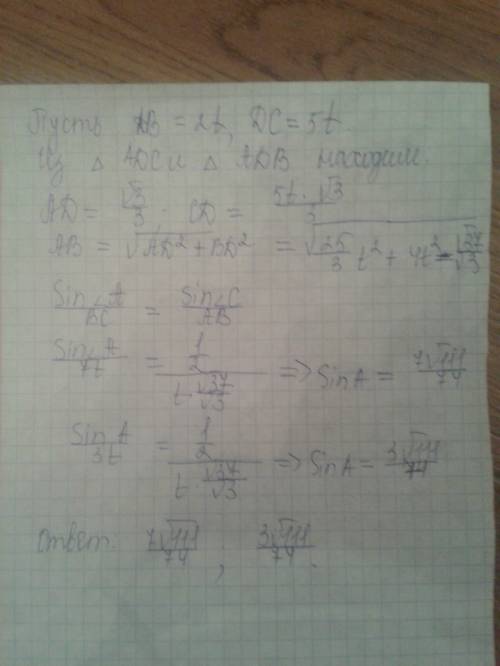 Пусть DB = 2t, DC = 5t.
Из △ ADC и △ ADB находим.
AD = √3/3 · CD = 5t·√3/3
AB = √(AD² + BD²) = √(25/3 t² + 4t²) = √37/√3
Sin∠A/BC = Sin∠C/AB
Sin∠A/7t = (1/2)/(t·√37/√3) => Sin A = 7√111/74
Sin A/3t = (1/2)/(t·√37/√3) => Sin A = 3√111/74
Ответ: 7√111/74 ; 3√111/74.